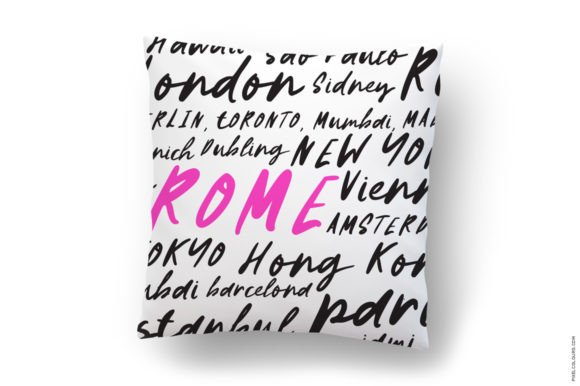 Hawaii Sao Paulo
London Sidney R
ERLIN, tORONTO, Mumbai, MA
nich Dubling NEW YO
ROME Vienn
AMSTERD
TOKYO Hong Kon
mbai barcelona
stanbul pari
idmi
PIXELCOLOURS.COM